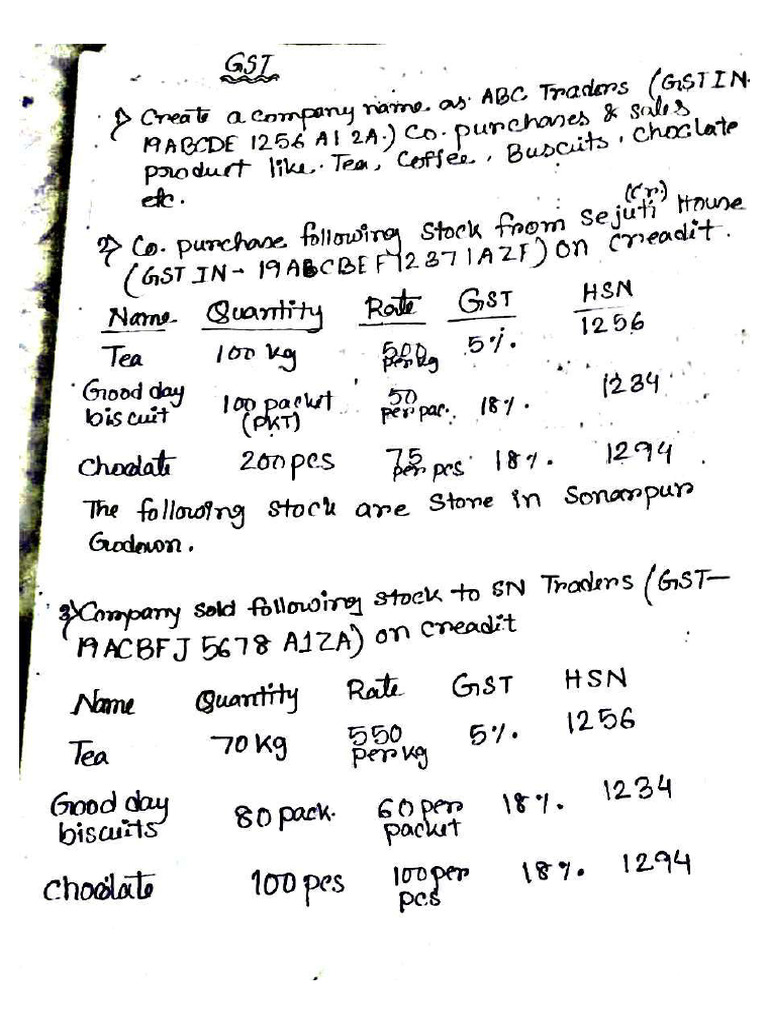 GST
1) Create a company name as ABC Traders (GSTIN.
19ABCDE 1256 A1 2A.) Co. purchases & sales
product like. Tea, Coffee, Buscuits, Choclate
etc.
(Cr.)
2) Co. purchase following stock from Sejuti House
(GSTIN - 19ABCBEF12371AZF) on creadit.
Name Quantity Rate GST HSN
Tea 100 kg 500 per kg 5%. 1256
Good day biscuit 100 packet (PKT) 50 per pac. 18%. 1234
Choclate 200 pcs 75 per pcs 18%. 1294
The following stock are store in Sonarpur
Godown.
3) Company sold following stock to SN Traders (GST-
19ACBFJ 5678 A1ZA) on creadit
Name Quantity Rate GST HSN
Tea 70 Kg 550 per kg 5%. 1256
Good day biscuits 80 pack. 60 per packet 18%. 1234
Choclate 100 pcs 100 per pcs 18%. 1294